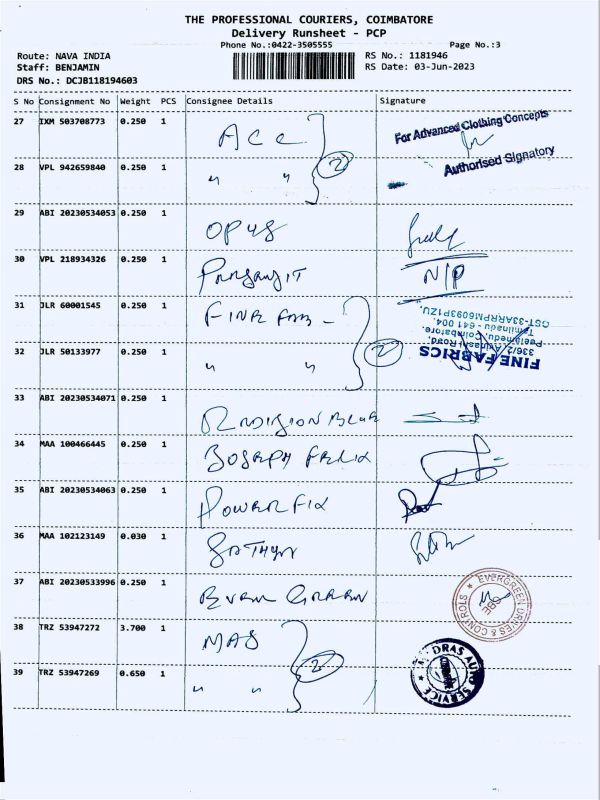 THE PROFESSIONAL COURIERS, COIMBATORE
Delivery Runsheet - PCP
Phone No.:0422-3505555 Page No.:3
Route: NAVA INDIA RS No.: 1181946
Staff: BENJAMIN RS Date: 03-Jun-2023
DRS No.: DCJB118194603
S No Consignment No Weight PCS Consignee Details Signature
27 IXM 503708773 0.250 1 ACC For Advanced Clothing Concepts
2 Authorised Signatory
28 VPL 942659840 0.250 1 " "
29 ABI 20230534053 0.250 1 OPUS
30 VPL 218934326 0.250 1 N/P
31 JLR 60001545 0.250 1 FINE FAB -
32 JLR 50133977 0.250 1 " " 2
FINE FABRICS
336/2, Avinashi Road,
Peelamedu, Coimbatore.
Tamilnadu - 641 004.
GST-33ARRPM6093P1ZU
33 ABI 20230534071 0.250 1
34 MAA 100466445 0.250 1 JOSEPH FELIX
35 ABI 20230534063 0.250 1 POWER FIX
36 MAA 102123149 0.030 1 SATHYA
37 ABI 20230533996 0.250 1 EVER GREEN
EVERGREEN DRIVES & CONTROLS
CBE
38 TRZ 53947272 3.700 1 MAS 2
39 TRZ 53947269 0.650 1 " "
MADRAS AUTO SERVICE